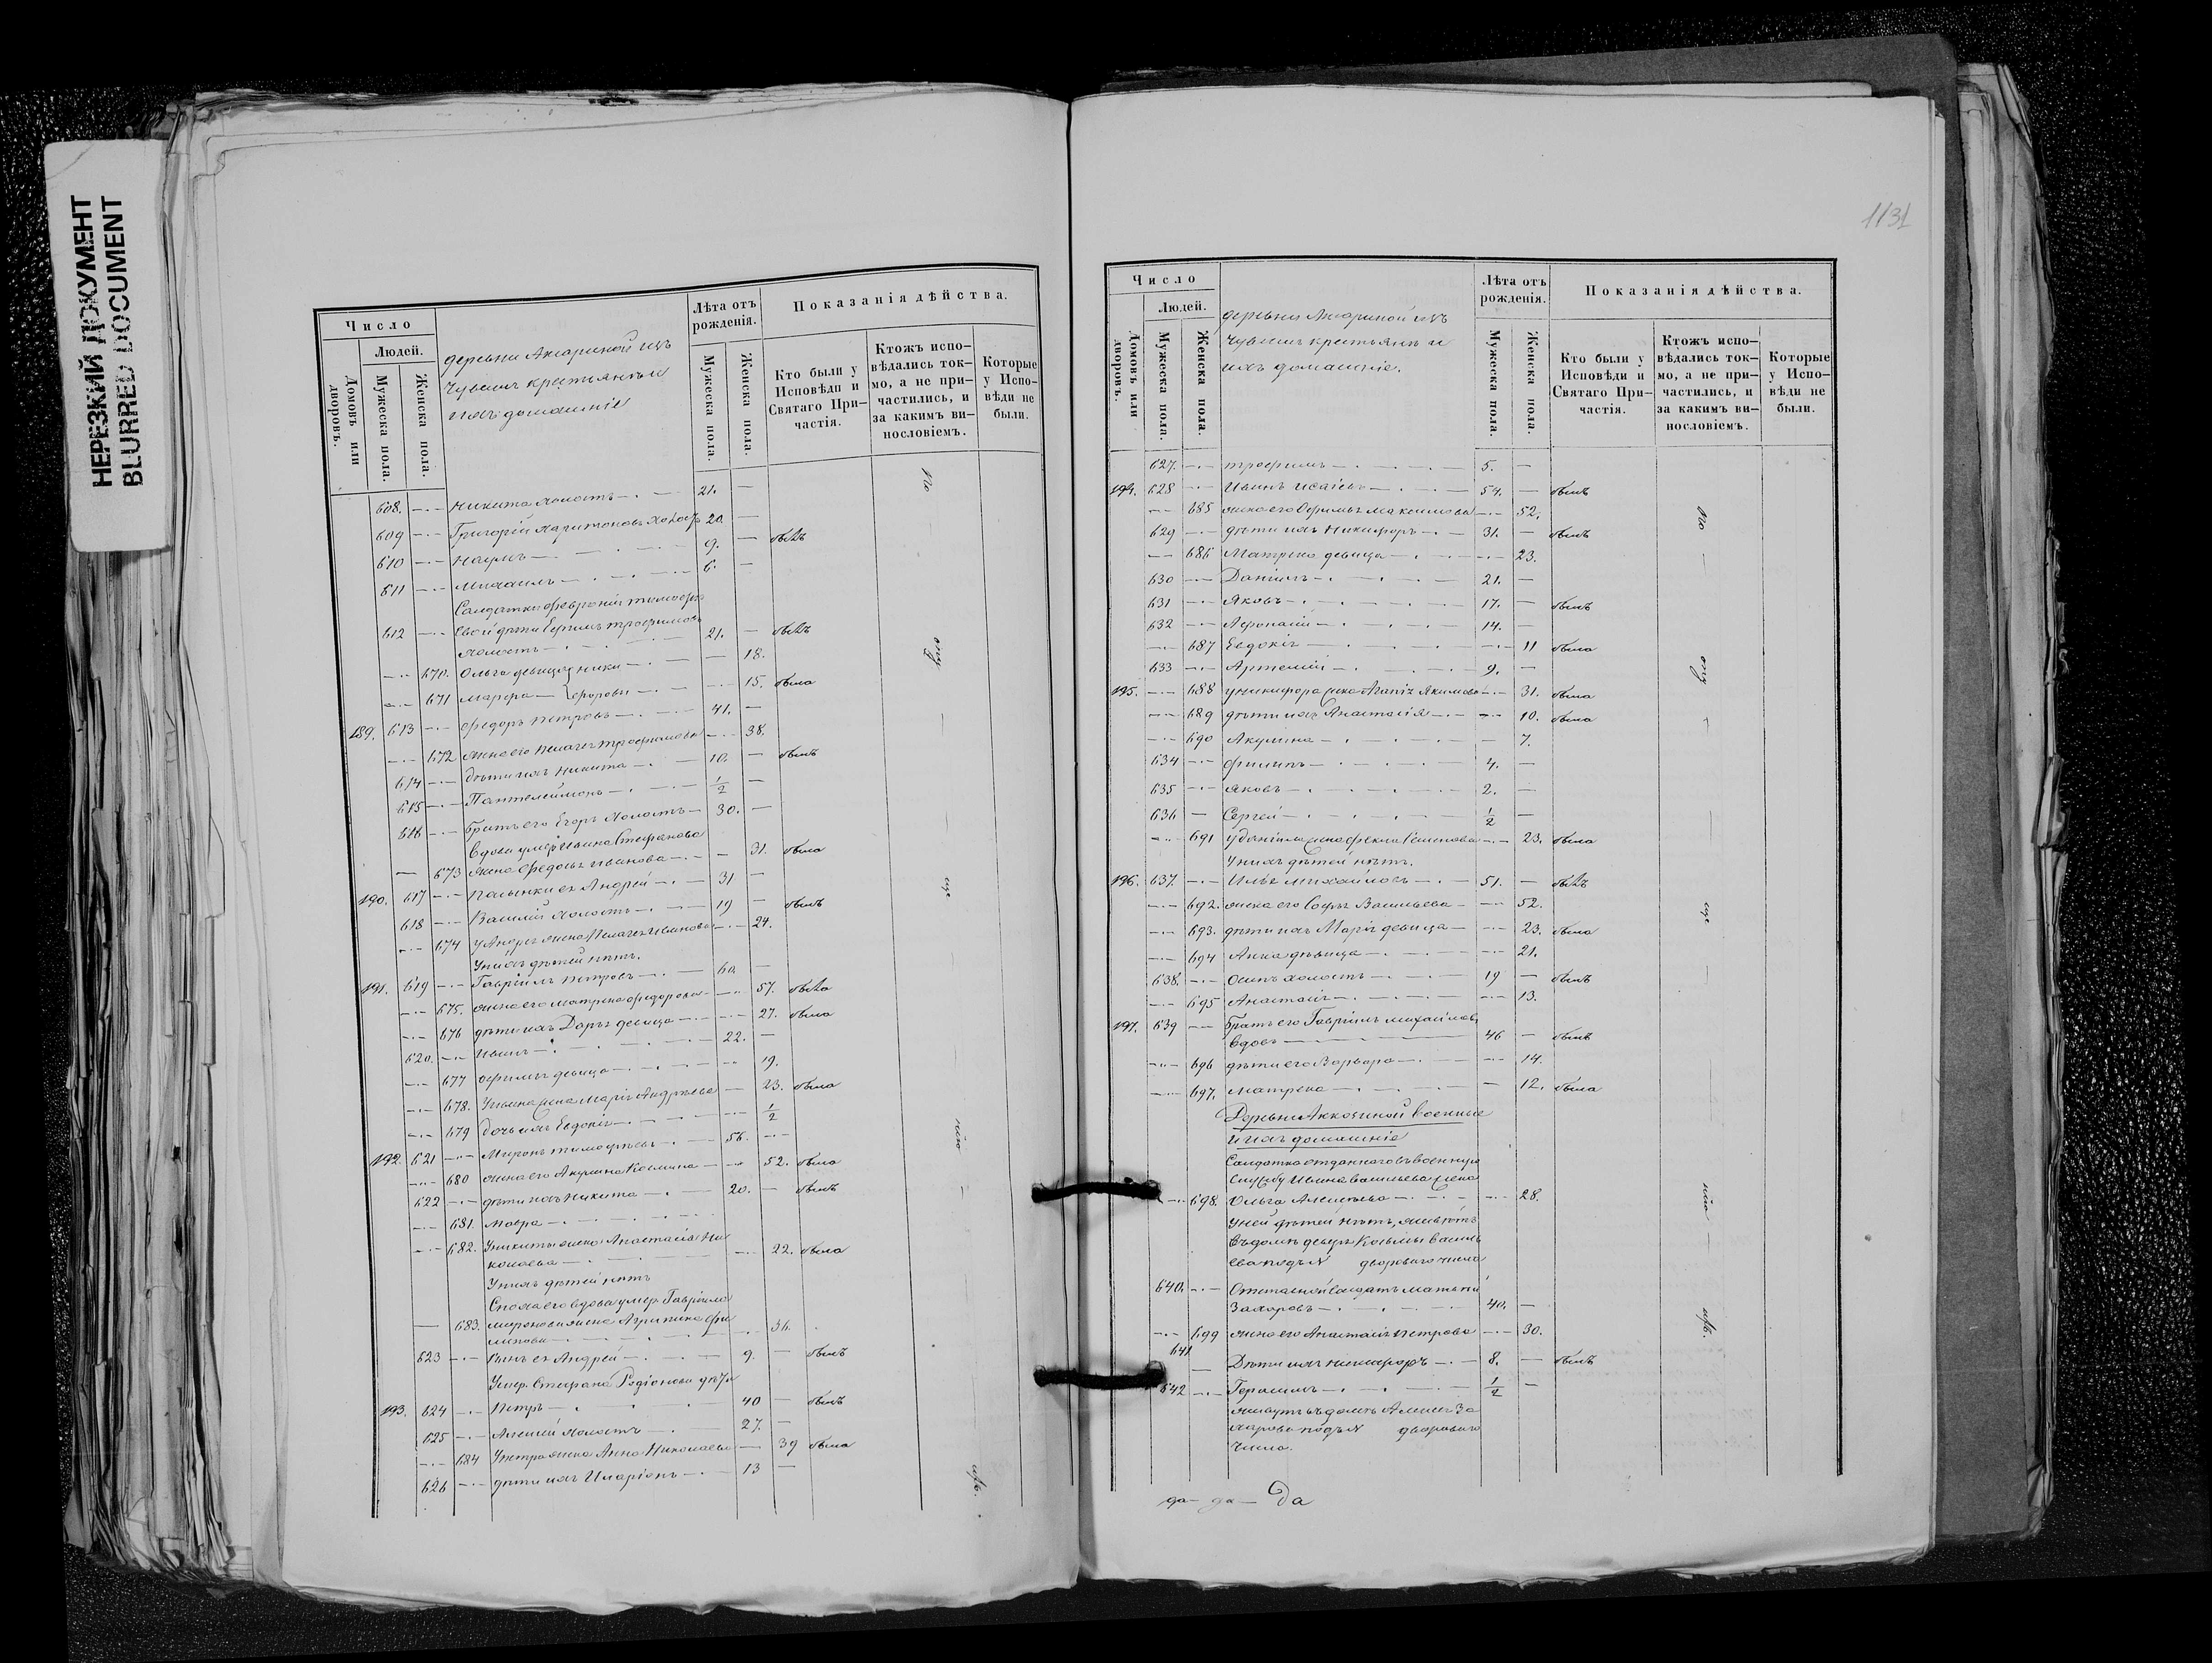 НЕРЕЗКИЙ ДОКУМЕНТ
BLURRED DOCUMENT
Число
Людей.
Домовъ или дворовъ.
Мужеска пола.
Женска пола.
деревни
Чувашъ крестьянъ и
ихъ домашніе
Лѣта отъ рожденія.
Мужеска пола.
Женска пола.
Показанія дѣйства.
Кто были у Исповѣди и Святаго Причастія.
Ктожъ исповѣдались токмо, а не причастились, и за какимъ винословіемъ.
Которые у Исповѣди не были.
608. Никита холостъ 21.
609 Григорій Харитоновъ холос 20.
610 Наумъ 9. былъ
611 Михаилъ 6.
Солдатки Февроніи Тимофѣ
612 евой дѣти Ефимъ Трофимовъ
холостъ 21. былъ
670. Ольга девица ники 18.
671 Марфа форовы 15. была
189. 613 Федоръ Петровъ 41.
672 жена его Пелагея Трофимова 38.
614 дѣти ихъ Никита 10. былъ
615 Пантелеймонъ 1/2
616 Братъ его Егоръ холостъ 30.
Вдова умер. Ивана Стефанова
673 жена Федосья Иванова 31. была
190. 617 Пасынки ея Андрей 31
618 Василій холостъ 19 былъ
674 У Андрея жена Пелагея Иванова 24.
У нихъ дѣтей нѣтъ.
191. 619 Гавріилъ Петровъ 60.
675. жена его Матрена Федорова 57. была
676 дѣти ихъ Дарья девица 27. была
620. Иванъ 22.
677 Офимья девица 19.
678. У Ивана жена Марія Андрѣева 23. была
679 дочь ихъ Евдокія 1/2
192. 621 Миронъ Тимофѣевъ 56.
680 жена его Акулина Козмина 52. была
622 дѣти ихъ Никита 20. былъ
681. Мавра
682. У Никиты жена Анастасія Ни
колаева 22. была
У нихъ дѣтей нѣтъ
Сноха его вдова умер. Гавріила
683. Миронова жена Агрипина Фи
липова 36.
623 Сынъ ея Андрей 9. былъ
Умер. Стефана Родіонова дѣти
193. 624 Петръ 40 былъ
625 Алексій холостъ 27.
684 У Петра жена Анна Николаева 39 была
626 дѣти ихъ Иларіонъ 13
По
ону
сце
нію
1131
Число
Людей.
Домовъ или дворовъ.
Мужеска пола.
Женска пола.
деревни
Чувашъ крестьянъ и
ихъ домашніе.
Лѣта отъ рожденія.
Мужеска пола.
Женска пола.
Показанія дѣйства.
Кто были у Исповѣди и Святаго Причастія.
Ктожъ исповѣдались токмо, а не причастились, и за какимъ винословіемъ.
Которые у Исповѣди не были.
627. Трофимъ 5.
194. 628 Иванъ Исаіевъ 54. былъ
685 жена его Офимья Максимова 52.
629 дѣти ихъ Никифоръ 31. былъ
686 Матрена девица 23.
630 Даніилъ 21.
631 Яковъ 17. былъ
632 Афонасій 14.
687 Евдокія 11 была
633 Артемій 9.
195. 688 У Никифора жена Агапія Якимова 31. была
689 дѣти ихъ Анастасія 10. была
690 Акулина 7.
634 Филипъ 4.
635 Яковъ 2.
636 Сергей 1/2
691 У Даніила жена Фекла Семенова 23. была
У нихъ дѣтей нѣтъ.
196. 637. Илья Михайловъ 51. былъ
692. жена его Софья Васильева 52.
693. дѣти ихъ Марія девица 23. была
694 Анна дѣвица 21.
638. Осипъ холостъ 19 былъ
695 Анастасія 13.
197. 639 Братъ его Гавріилъ Михайловъ
вдовъ 46 былъ
696 дѣти его Варвара 14.
697. Матрена 12. была
Деревни Аккозиной военные
и ихъ домашніе
Солдатка отданнаго въ военную
службу Ивана Васильева жена
698. Ольга Алексѣева 28.
У ней дѣтей нѣтъ, живетъ
въ домѣ деверя Козьмы Василь
ева подъ № двороваго числа
640. Отставной солдатъ Матвѣй
Захаровъ 40.
699 жена его Анастасія Петрова 30.
641 Дѣти ихъ Никифоръ 8. былъ
642 Герасимъ 1/2
живутъ въ домѣ Алексея За
харова подъ № двороваго
числа.
По
ону
сце
нію
да - да - Да